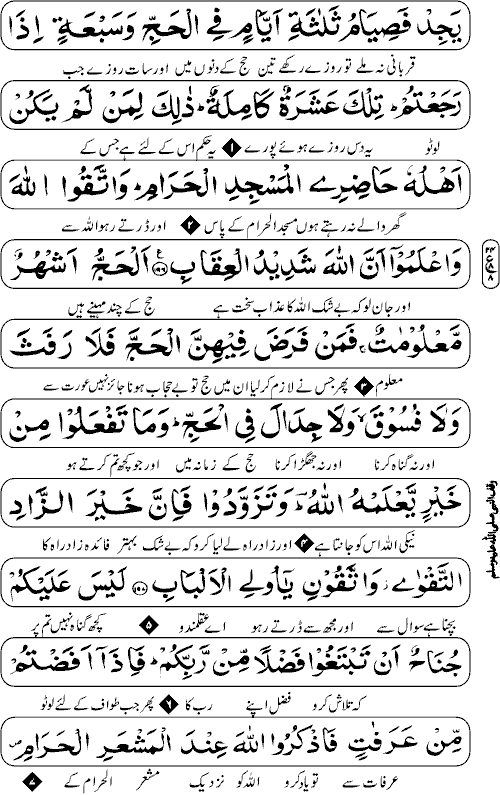 يَجِدْ فَصِيَامُ ثَلٰثَةِ اَيَّامٍ فِي الْحَجِّ وَسَبْعَةٍ اِذَا
قربانی نہ ملے تو روزے رکھے تین حج کے دنوں میں اور سات روزے جب
رَجَعْتُمْ ؕ تِلْكَ عَشَرَةٌ كَامِلَةٌ ؕ ذٰلِكَ لِمَنْ لَّمْ يَكُنْ
لوٹو یہ دس روزے ہوئے پورے ۱ یہ حکم اس کے لئے ہے جس کے
اَهْلُهٗ حَاضِرِي الْمَسْجِدِ الْحَرَامِ ؕ وَاتَّقُوا اللّٰهَ
گھر والے نہ رہتے ہوں مسجد الحرام کے پاس ۲ اور ڈرتے رہو اللہ سے
وَاعْلَمُوْٓا اَنَّ اللّٰهَ شَدِيْدُ الْعِقَابِ ﴿۱۹۶﴾ اَلْحَجُّ اَشْهُرٌ
اور جان لو کہ بے شک اللہ کا عذاب سخت ہے حج کے چند مہینے ہیں
مَّعْلُوْمٰتٌ ۚ فَمَنْ فَرَضَ فِيْهِنَّ الْحَجَّ فَلَا رَفَثَ
معلوم ۳ پھر جس نے لازم کر لیا ان میں حج تو بے حجاب ہونا جائز نہیں عورت سے
وَلَا فُسُوْقَ ۙ وَلَا جِدَالَ فِي الْحَجِّ ؕ وَمَا تَفْعَلُوْا مِنْ
اور نہ گناہ کرنا اور نہ جھگڑا کرنا حج کے زمانہ میں اور جو کچھ تم کرتے ہو
خَيْرٍ يَّعْلَمْهُ اللّٰهُ ؕ وَتَزَوَّدُوْا فَاِنَّ خَيْرَ الزَّادِ
نیکی اللہ اس کو جانتا ہے ۴ اور زاد راہ لے لیا کرو کہ بے شک بہتر فائدہ زاد راہ کا
التَّقْوٰى ؗ وَاتَّقُوْنِ يٰٓاُولِي الْاَلْبَابِ ﴿۱۹۷﴾ لَيْسَ عَلَيْكُمْ
بچنا ہے سوال سے اور مجھ سے ڈرتے رہو اے عقلمندو ۵ کچھ گناہ نہیں تم پر
جُنَاحٌ اَنْ تَبْتَغُوْا فَضْلًا مِّنْ رَّبِّكُمْ ؕ فَاِذَآ اَفَضْتُمْ
کہ تلاش کرو فضل اپنے رب کا ۶ پھر جب طواف کے لئے لوٹو
مِّنْ عَرَفٰتٍ فَاذْكُرُوا اللّٰهَ عِنْدَ الْمَشْعَرِ الْحَرَامِ
عرفات سے تو یاد کرو اللہ کو نزدیک مشعر الحرام کے ۷
وقف النبی صلی اللہ علیہ وسلم